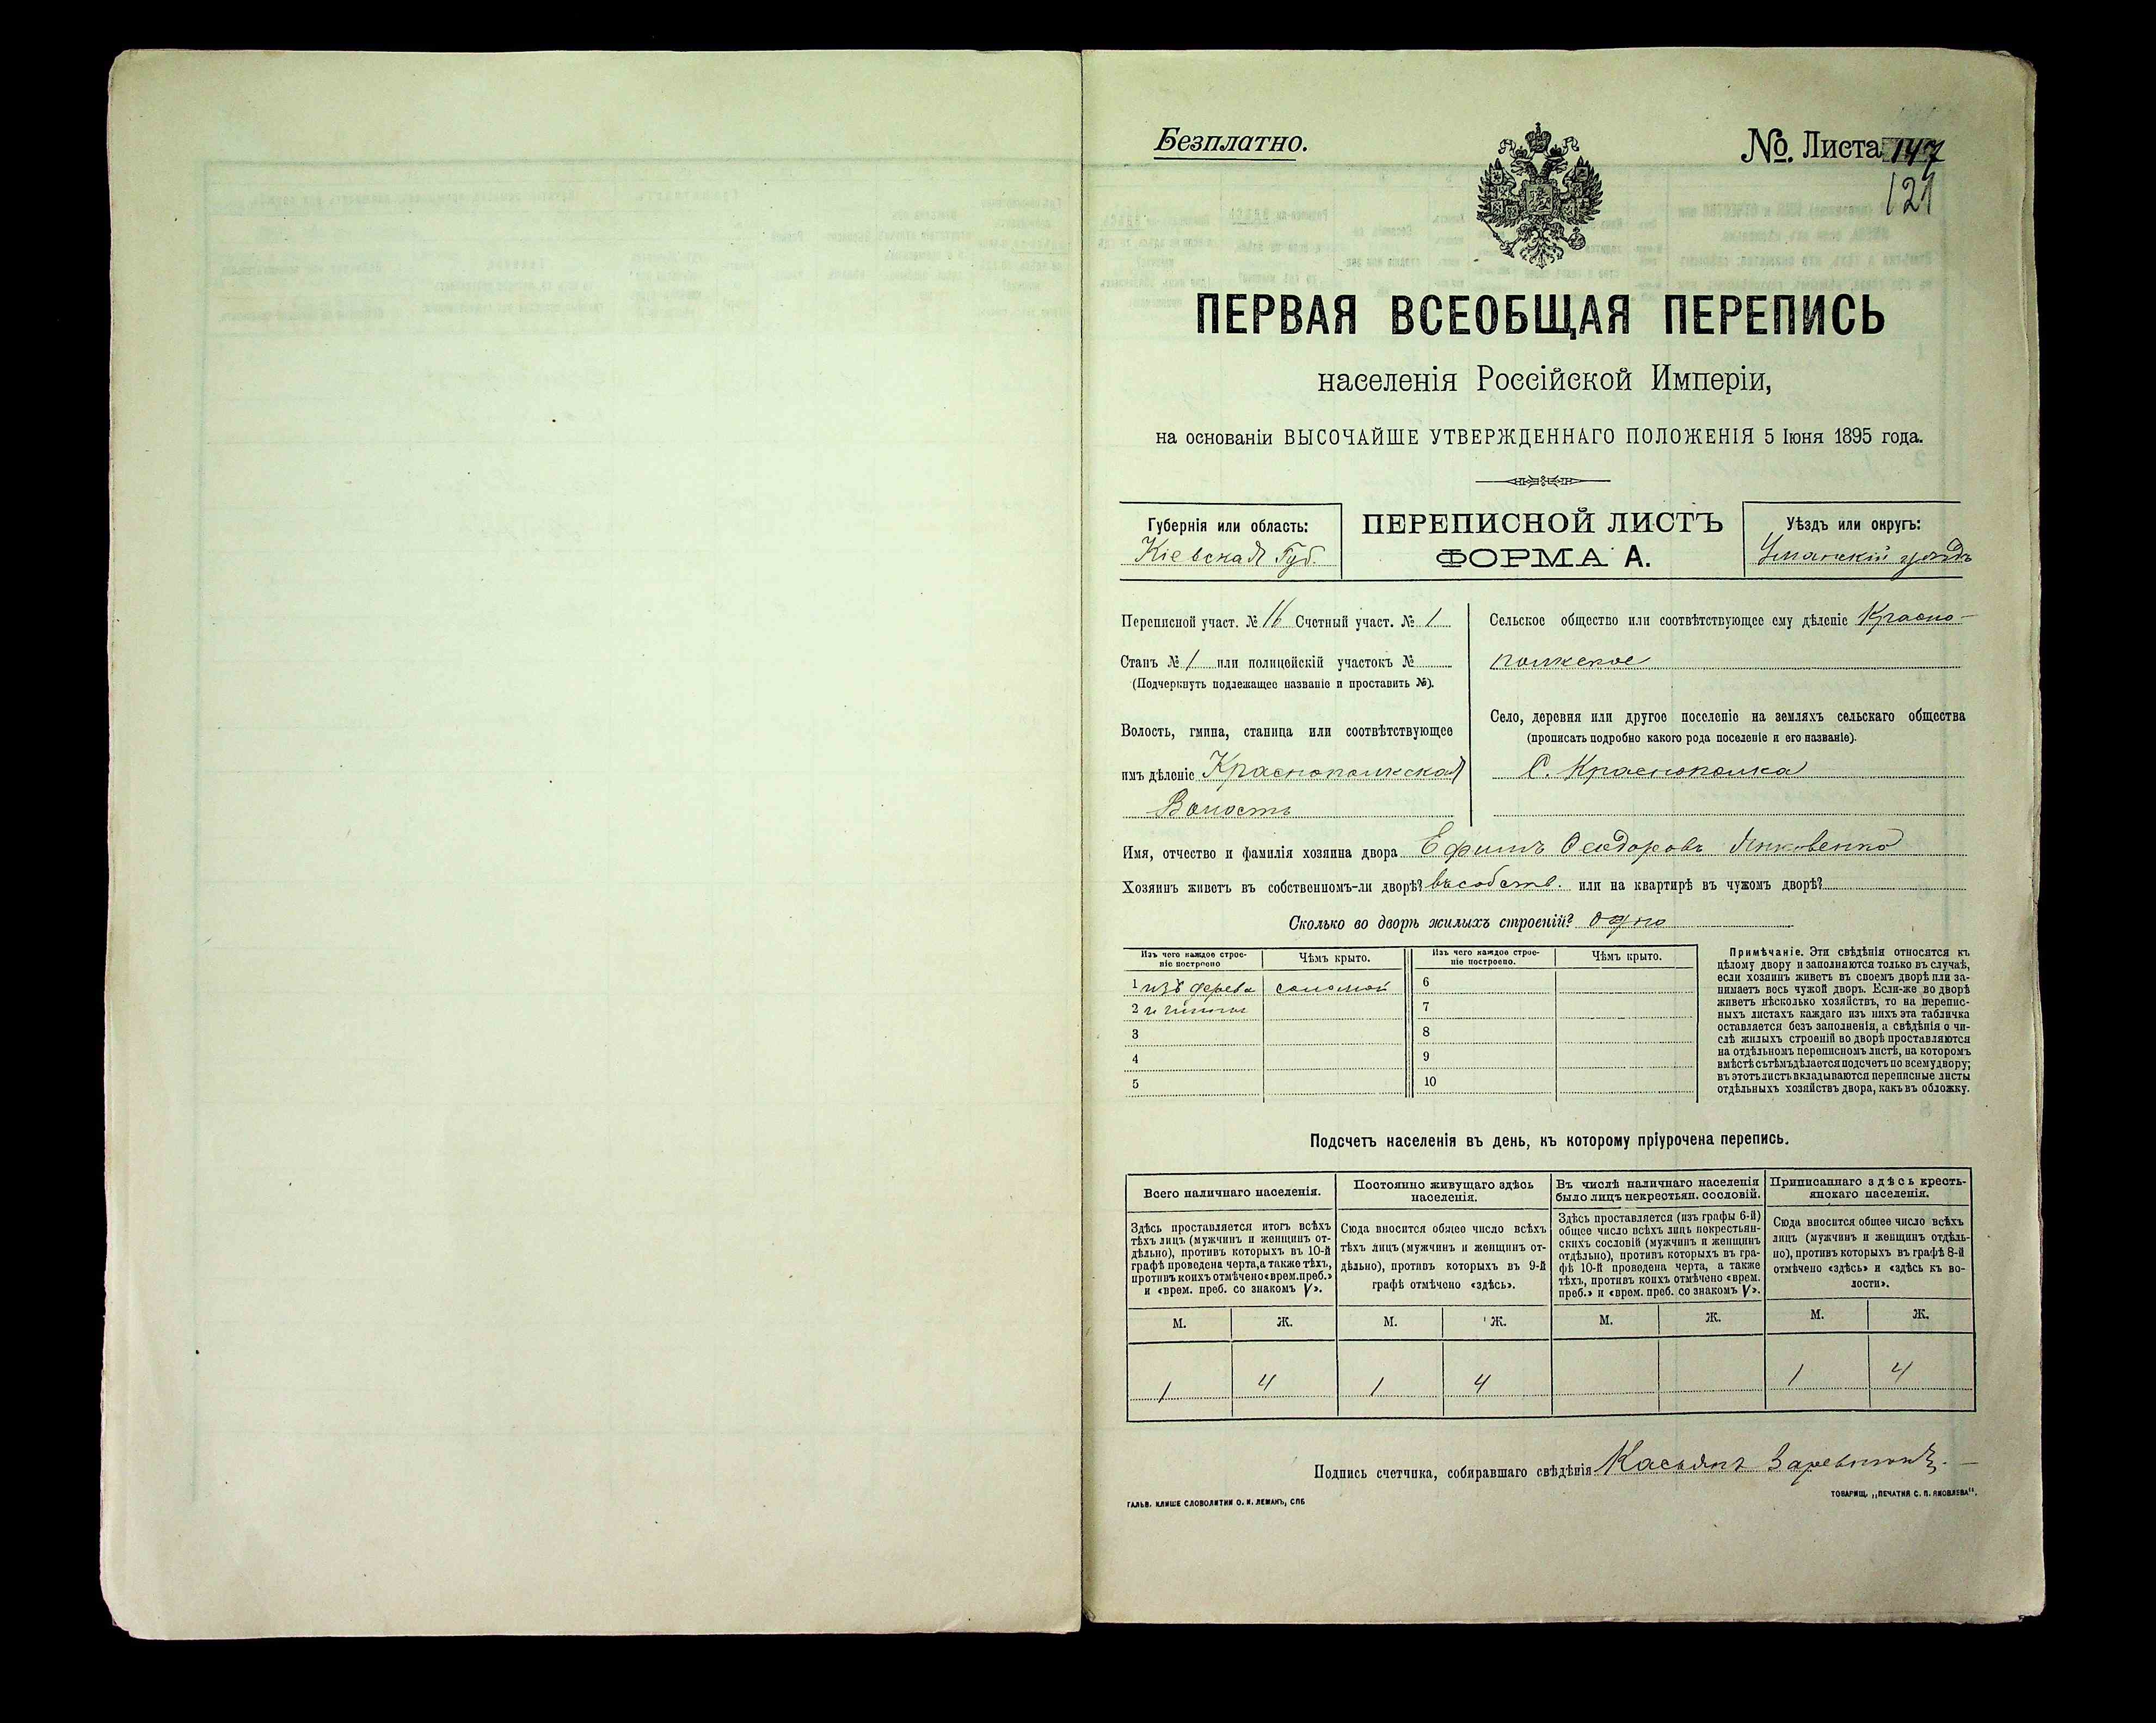 Безплатно.
No. Листа 147
121
ПЕРВАЯ ВСЕОБЩАЯ ПЕРЕПИСЬ
населенія Россійской Имперіи,
на основаніи ВЫСОЧАЙШЕ УТВЕРЖДЕННАГО ПОЛОЖЕНІЯ 5 Іюня 1895 года.
Губернія или область:
Кіевская Губ.
ПЕРЕПИСНОЙ ЛИСТЪ
ФОРМА А.
Уѣздъ или округъ:
Уманскій уѣздъ
Переписной участ. № 16 Счетный участ. № 1
Станъ № 1 или полицейскій участокъ №
(Подчеркнуть подлежащее названіе и проставить №).
Волость, гмина, станица или соотвѣтствующее
имъ дѣленіе Краснопольская
Волость
Сельское общество или соотвѣтствующее ему дѣленіе Красно-
польское
Село, деревня или другое поселеніе на земляхъ сельскаго общества
(прописать подробно какого рода поселеніе и его названіе).
С. Краснополка
Имя, отчество и фамилія хозяина двора Ефимъ Феодоровъ Янковенко
Хозяинъ живетъ въ собственномъ-ли дворѣ? въ собств. или на квартирѣ въ чужомъ дворѣ?
Сколько во дворѣ жилыхъ строеній? одно
Изъ чего каждое строе-
ніе построено
Чѣмъ крыто.
Изъ чего каждое строе-
ніе построено.
Чѣмъ крыто.
1 изъ дерева соломой
2 и глины
3
4
5
6
7
8
9
10
Примѣчаніе. Эти свѣдѣнія относятся къ
цѣлому двору и заполняются только въ случаѣ,
если хозяинъ живетъ въ своемъ дворѣ или за-
нимаетъ весь чужой дворъ. Если-же во дворѣ
живетъ нѣсколько хозяйствъ, то на перепис-
ныхъ листахъ каждаго изъ нихъ эта табличка
оставляется безъ заполненія, а свѣдѣнія о чи-
слѣ жилыхъ строеній во дворѣ проставляются
на отдѣльномъ переписномъ листѣ, на которомъ
вмѣстѣ съ тѣмъ дѣлается подсчетъ по всему двору;
въ этотъ листъ вкладываются переписные листы
отдѣльныхъ хозяйствъ двора, какъ въ обложку.
Подсчетъ населенія въ день, къ которому пріурочена перепись.
Всего наличнаго населенія.
Здѣсь проставляется итогъ всѣхъ
тѣхъ лицъ (мужчинъ и женщинъ от-
дѣльно), противъ которыхъ въ 10-й
графѣ проведена черта, а также тѣхъ,
противъ коихъ отмѣчено «врем. преб.»
и «врем. преб. со знакомъ V».
Постоянно живущаго здѣсь
населенія.
Сюда вносится общее число всѣхъ
тѣхъ лицъ (мужчинъ и женщинъ от-
дѣльно), противъ которыхъ въ 9-й
графѣ отмѣчено «здѣсь».
Въ числѣ наличнаго населенія
было лицъ некрестьян. сословій.
Здѣсь проставляется (изъ графы 6-й)
общее число всѣхъ лицъ некрестьян-
скихъ сословій (мужчинъ и женщинъ
отдѣльно), противъ которыхъ въ гра-
фѣ 10-й проведена черта, а также
тѣхъ, противъ коихъ отмѣчено «врем.
преб.» и «врем. преб. со знакомъ V».
Приписаннаго здѣсь кресть-
янскаго населенія.
Сюда вносится общее число всѣхъ
лицъ (мужчинъ и женщинъ отдѣль-
но), противъ которыхъ въ графѣ 8-й
отмѣчено «здѣсь» и «здѣсь къ во-
лости».
М. Ж. М. Ж. М. Ж. М. Ж.
1 4 1 4 1 4
Подпись счетчика, собиравшаго свѣдѣнія Касьянъ
ГАЛЬВ. КЛИШЕ СЛОВОЛИТНИ О. И. ЛЕМАНЪ, СПБ
ТОВАРИЩ. „ПЕЧАТНЯ С. П. ЯКОВЛЕВА“.